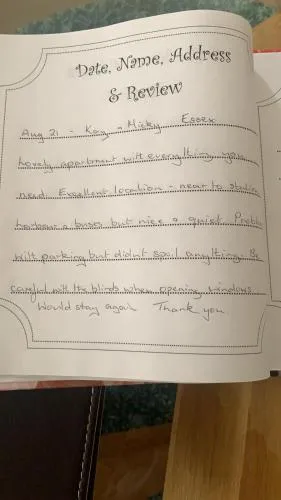 Date, Name, Address
& Review
Aug 21 - Kay & Micky Essex
Lovely apartment with everything you
need. Excellent location - near to station
harbour & buses but nice & quiet. Proble
with parking but didnt spoil anything. Be
careful with the blinds when opening windows.
Would stay again Thank you.